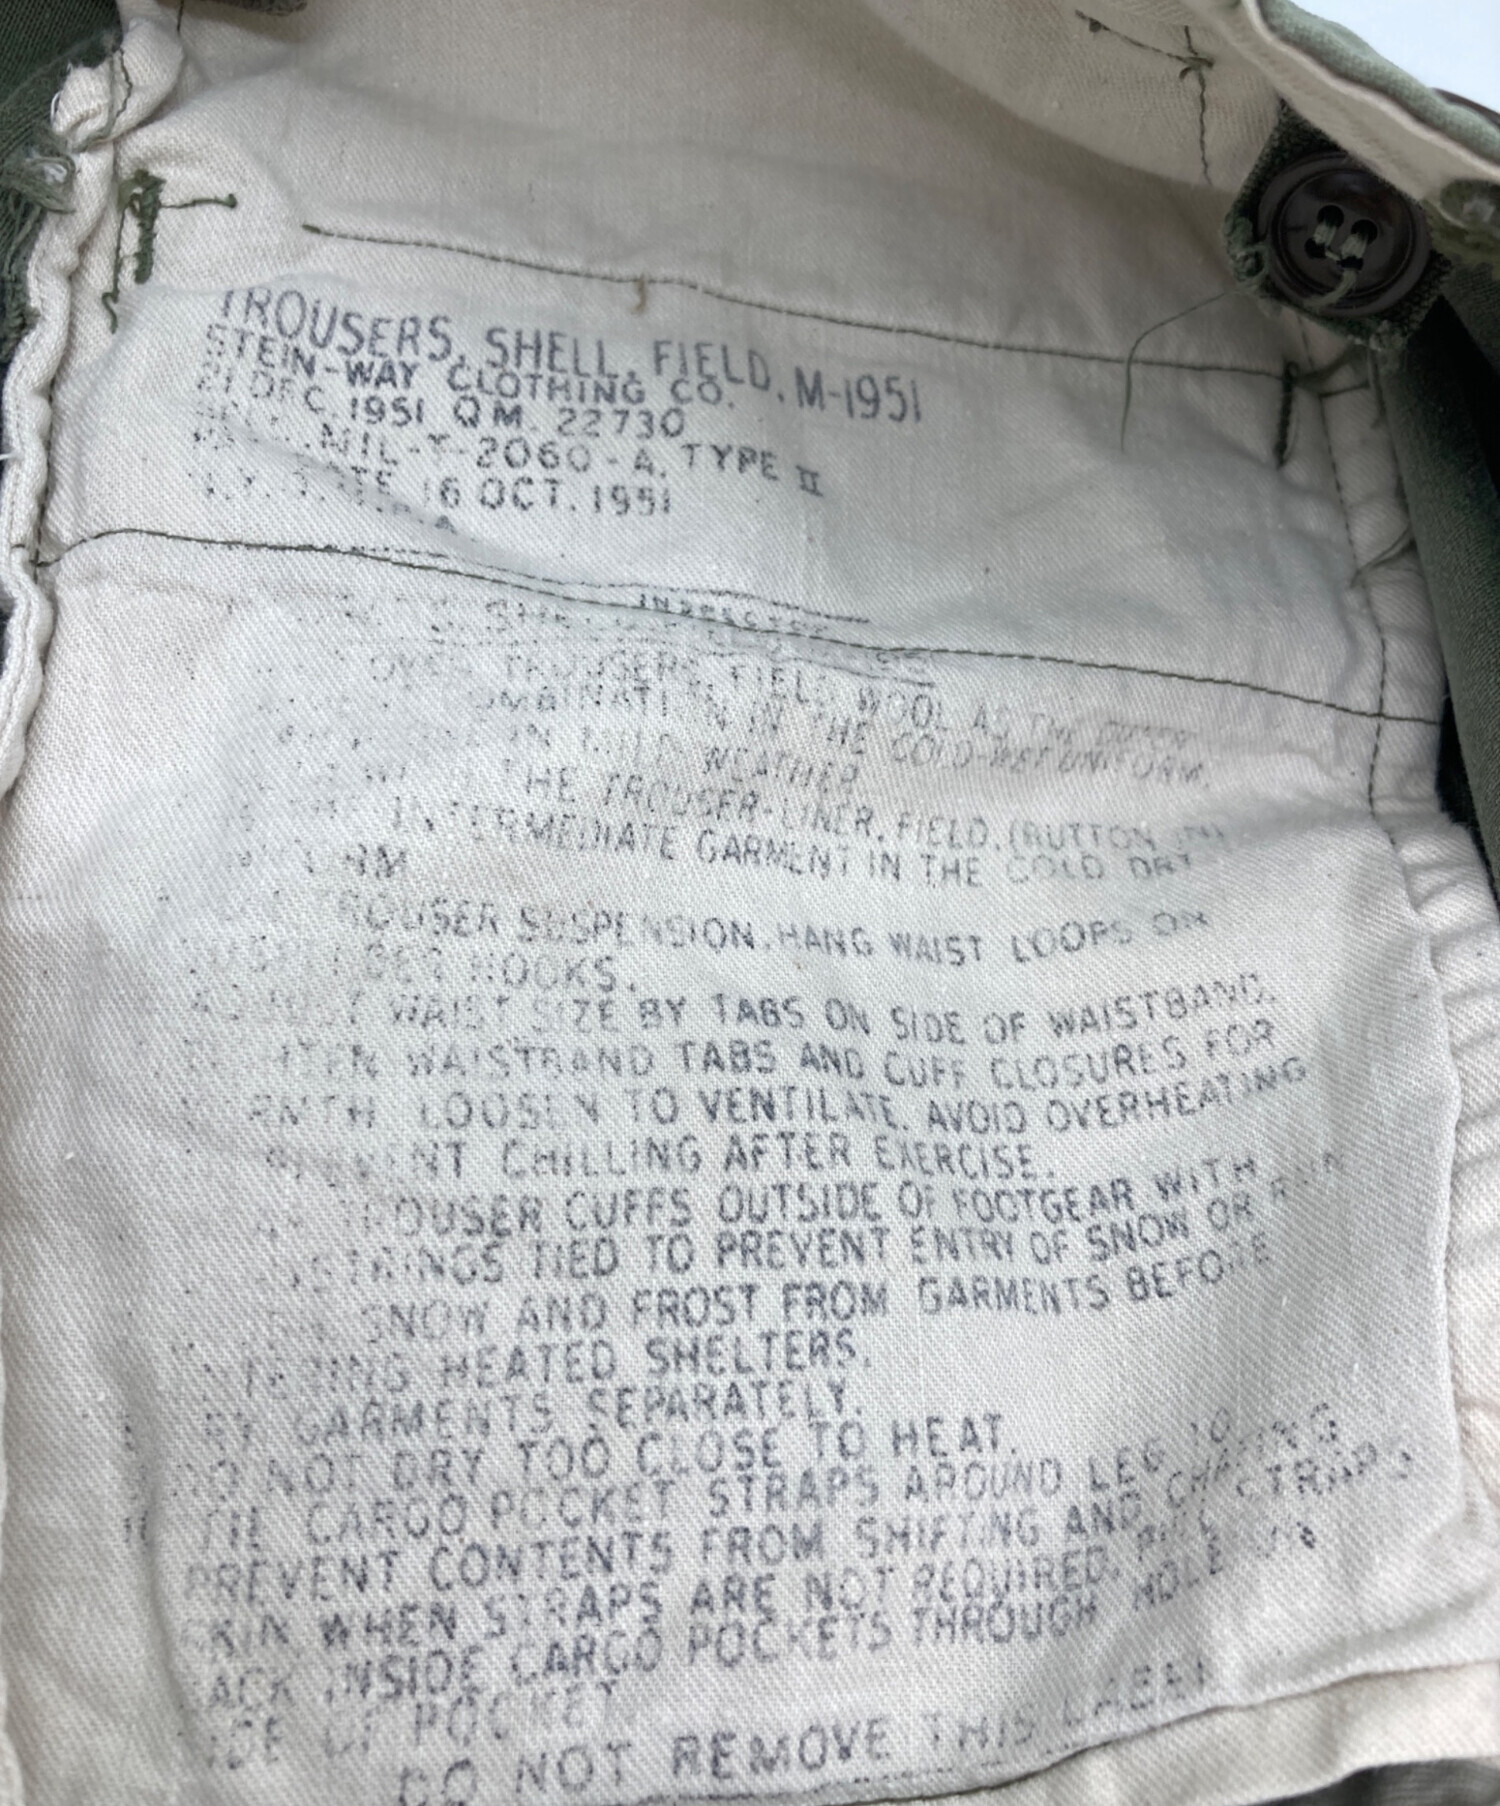 TROUSERS, SHELL, FIELD, M-1951
STEIN-WAY CLOTHING CO.
21 DEC. 1951 QM. 22730
MIL-T-2060-A, TYPE II
16 OCT. 1951
INSPECTOR
OVER TROUSERS, FIELD, WOOL AS THE OUTER
COMBINATION IN THE COLD-WET UNIFORM,
IN MILD WEATHER
THE TROUSER-LINER, FIELD, (BUTTON IN)
INTERMEDIATE GARMENT IN THE COLD DRY
TROUSER SUSPENSION, HANG WAIST LOOPS ON
HOOKS.
ADJUST WAIST SIZE BY TABS ON SIDE OF WAISTBAND.
WAISTBAND TABS AND CUFF CLOSURES FOR
LOOSEN TO VENTILATE. AVOID OVERHEATING
CHILLING AFTER EXERCISE.
TROUSER CUFFS OUTSIDE OF FOOTGEAR WITH
TIED TO PREVENT ENTRY OF SNOW OR RAIN
SNOW AND FROST FROM GARMENTS BEFORE
HEATED SHELTERS.
GARMENTS SEPARATELY.
DO NOT DRY TOO CLOSE TO HEAT.
TIE CARGO POCKET STRAPS AROUND LEG TO
PREVENT CONTENTS FROM SHIFTING AND CHAFING
SKIN WHEN STRAPS ARE NOT REQUIRED, STRAPS
INSIDE CARGO POCKETS THROUGH HOLE
OF POCKET
DO NOT REMOVE THIS LABEL